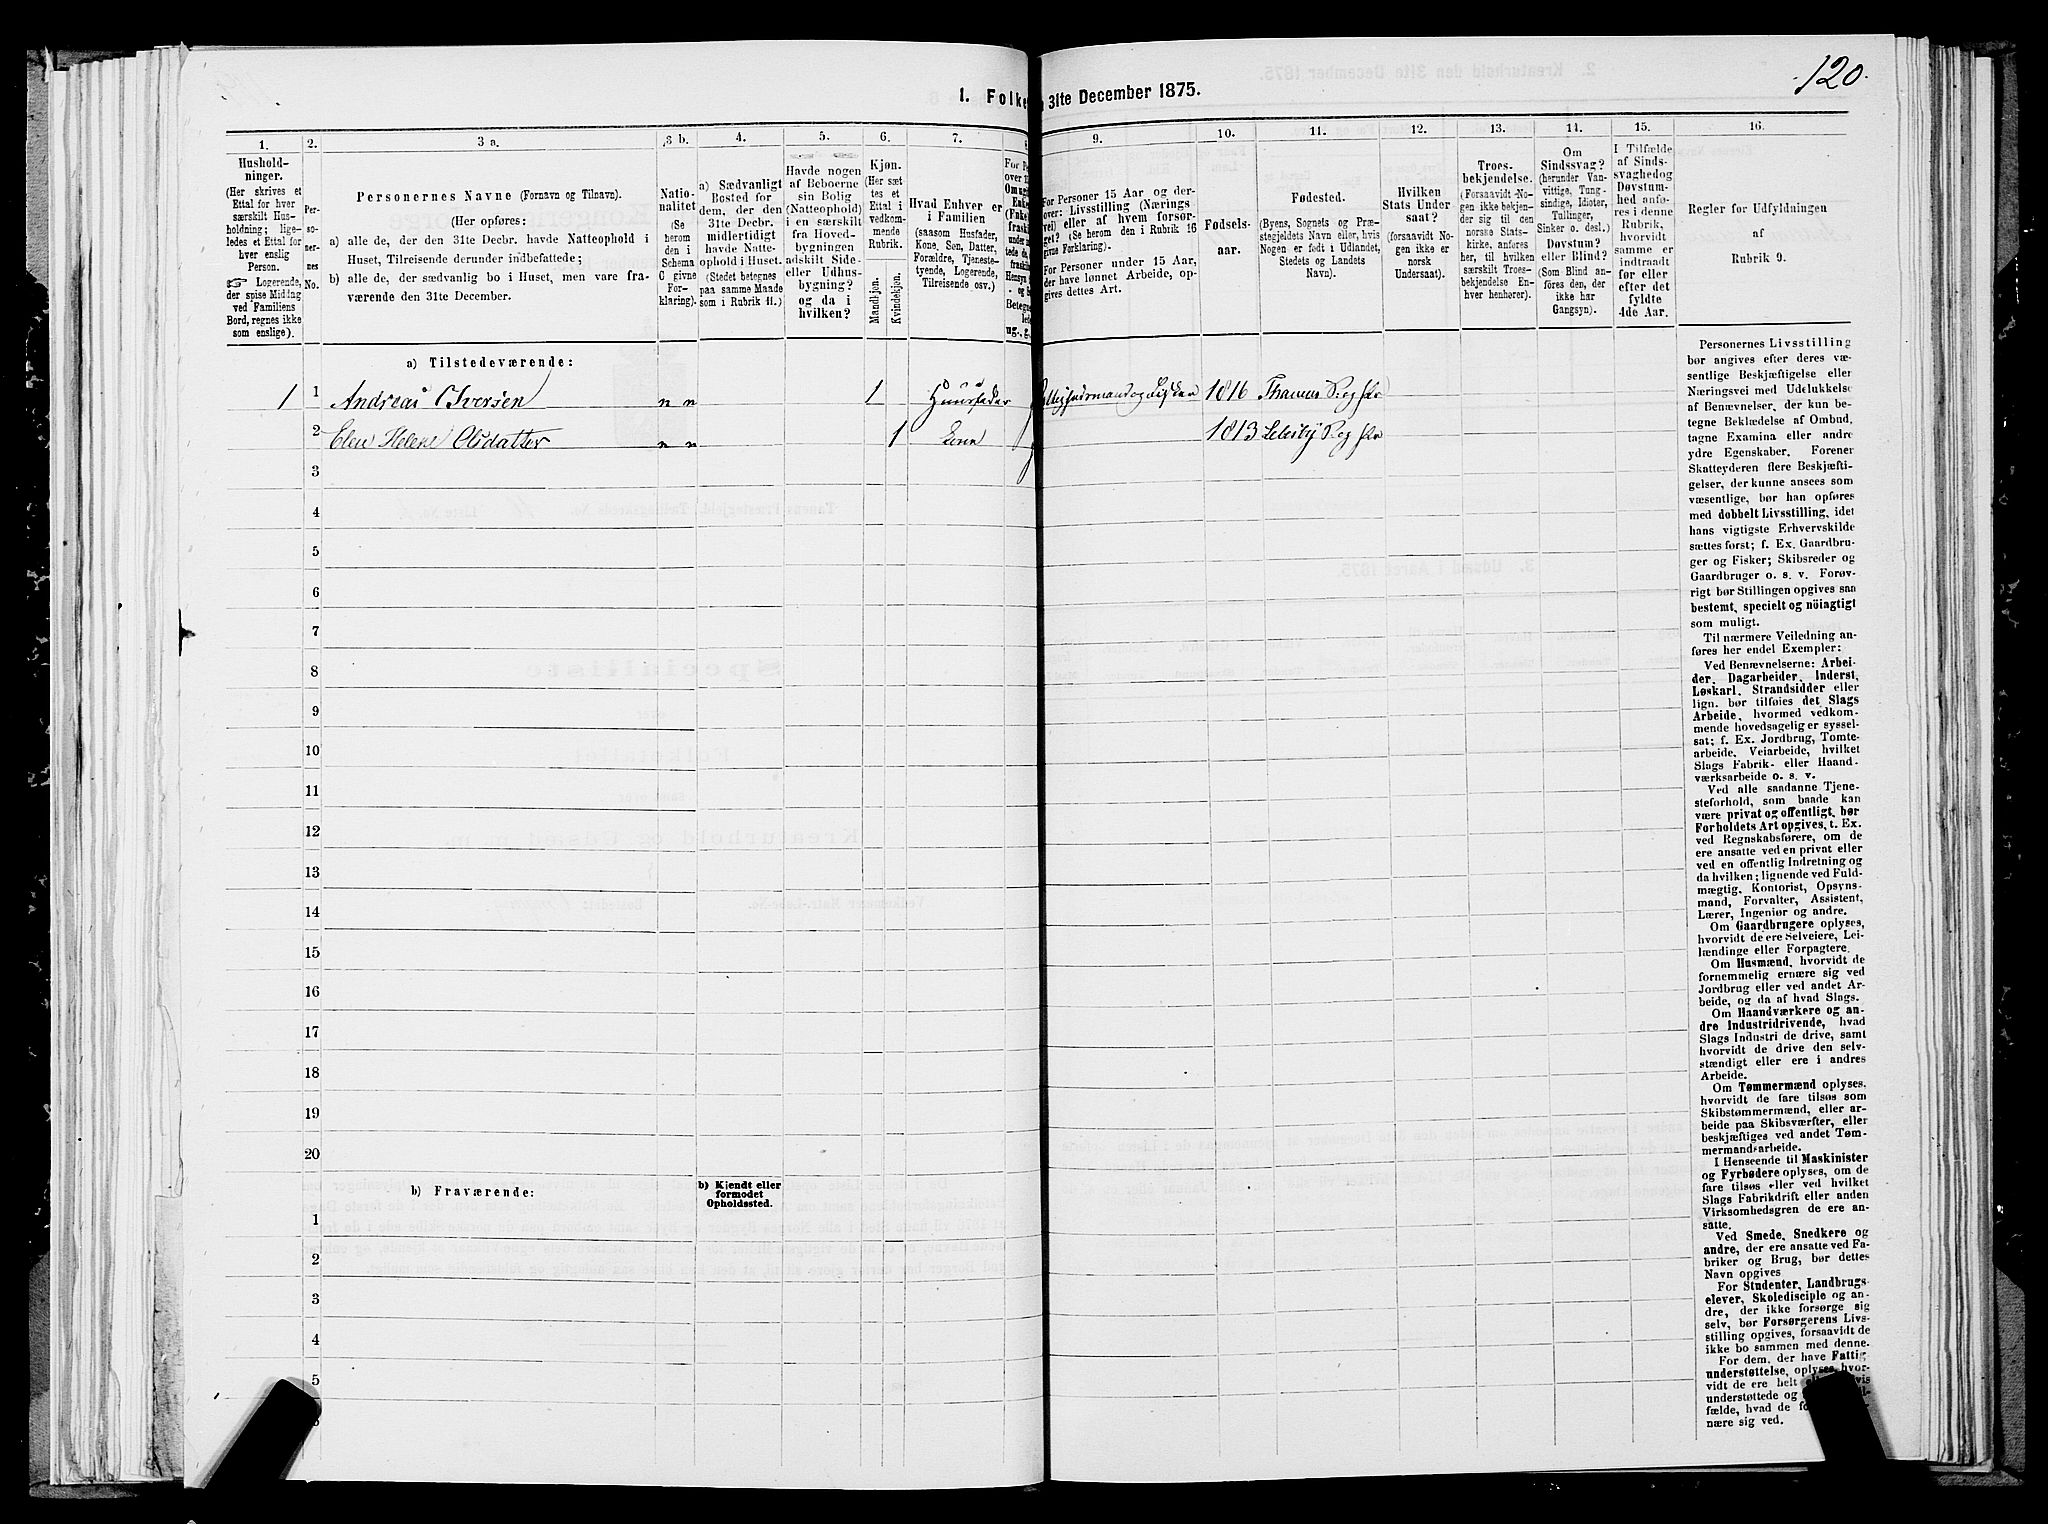 120.
1. Folke
31te December 1875.
1.
2.
3 a.
3 b.
4.
5.
6.
7.
8
9.
10.
11.
12.
13.
14.
15.
16.
Hushold-
ninger.
(Her skrives et
Ettal for hver
særskilt Hus-
holdning; lige-
ledes et Ettal for
hver enslig
Person.
☞ Logerende,
der spise Middag
ved Familiens
Bord, regnes ikke
som enslige).
Per-
so-
ner-
nes
No.
Personernes Navne (Fornavn og Tilnavn).
(Her opføres:
a) alle de, der den 31te Decbr. havde Natteophold i
Huset, Tilreisende derunder indbefattede;
b) alle de, der sædvanlig bo i Huset, men vare fra-
værende den 31te December.
Natio-
nalitet
(Se
herom
den i
Schema
C givne
For-
klaring).
a) Sædvanligt
Bosted for
dem, der den
31te Decbr.
midlertidigt
havde Natte-
ophold i Huset.
(Stedet betegnes
paa samme Maade
som i Rubrik 11.)
Havde nogen
af Beboerne
sin Bolig
(Natteophold)
i en særskilt
fra Hoved-
bygningen
adskilt Side-
eller Udhus-
bygning?
og da i
hvilken?
Kjøn.
(Her sæt-
tes et
Ettal i
vedkom-
mende
Rubrik.
Mandkjøn.
Kvindekjøn.
Hvad Enhver er
i Familien
(saasom Husfader,
Kone, Søn, Datter,
Forældre, Tjeneste-
tyende, Logerende,
Tilreisende osv.)
ug., g.,
For Personer 15 Aar og der-
over: Livsstilling (Nærings
vei) eller af hvem forsør-
get? (Se herom den i Rubrik 16
givne Forklaring).
For Personer under 15 Aar,
der have lønnet Arbeide, op-
gives dettes Art.
Fødsels-
aar.
Fødested.
(Byens, Sognets og Præ-
stegjeldets Navn eller, hvis
Nogen er født i Udlandet,
Stedets og Landets
Navn).
Hvilken
Stats Under
saat?
(forsaavidt No-
gen ikke er
norsk
Undersaat).
Troes-
bekjendelse.
(Forsaavidt No-
gen ikke bekjen-
der sig til den
norske Stats-
kirke, anføres
her, til hvilken
særskilt Troes-
bekjendelse En-
hver henhører).
Om
Sindssvag?
(herunder Van-
vittige, Tung-
sindige, Idioter,
Tullinger,
Sinker o. desl.)
Døvstum?
eller Blind?
(Som Blind an-
føres den, der
ikke har
Gangsyn).
I Tilfælde
af Sinds-
svaghed og
Døvstum-
hed anfø-
res i denne
Rubrik,
hvorvidt
samme er
indtraadt
før eller
efter det
fyldte
4de Aar.
Regler for Udfyldningen
af
Rubrik 9.
a) Tilstedeværende:
1 1 Andreas Iversen n n 1 Huusfader 1816
2 Elen Helene Olsdatter n n 1 kone 1813
3
4
5
6
7
8
9
10
11
12
13
14
15
16
17
18
19
20
b) Fraværende:
b) Kjendt eller
formodet
Opholdssted.
1
2
3
4
5
Personernes Livsstilling
bør angives efter deres væ-
sentlige Beskjæftigelse eller
Næringsvei med Udelukkelse
af Benævnelser, der kun be-
tegne Beklædelse af Ombud,
tagne Examina eller andre
ydre Egenskaber. Forener
Skatteyderen flere Beskjæfti-
gelser, der kunne ansees som
væsentlige, bør han opføres
med dobbelt Livsstilling, idet
hans vigtigste Erhvervskilde
sættes først; f. Ex. Gaardbru-
ger og Fisker; Skibsreder og
Gaardbruger o. s. v. Forøv-
rigt bør Stillingen opgives saa
bestemt, specielt og nöiagtigt
som muligt.
Til nærmere Veiledning an-
føres her endel Exempler:
Ved Benævnelserne: Arbei-
der, Dagarbeider, Inderst,
Løskarl, Strandsidder eller
lign. bør tilføies det Slags
Arbeide, hvormed vedkom-
mende hovedsagelig er syssel-
sat; f. Ex. Jordbrug, Tomte-
arbeide, Veiarbeide, hvilket
Slags Fabrik- eller Haand-
værksarbeide o. s. v.
Ved alle saadanne Tjene-
steforhold, som baade kan
være privat og offentligt, bør
Forholdets Art opgives, t. Ex.
ved Regnskabsførere, om de
ere ansatte ved en privat eller
ved en offentlig Indretning og
da hvilken; lignende ved Fuld-
mægtig, Kontorist, Opsyns-
mand, Forvalter, Assistent,
Lærer, Ingeniør og andre.
Om Gaardbrugere oplyses,
hvorvidt de ere Selveiere, Lei-
lændinge eller Forpagtere.
Om Husmænd, hvorvidt de
fornemmelig ernære sig ved
Jordbrug eller ved andet Ar-
beide, og da af hvad Slags.
Om Haandværkere og an-
dre Industridrivende, hvad
Slags Industri de drive, samt
hvorvidt de drive den selv-
stændigt eller ere i andres
Arbeide.
Om Tømmermænd oplyses,
hvorvidt de fare tilsøs som
Skibstømmermænd, eller ar-
beide paa Skibsværfter, eller
beskjæftiges ved andet Tøm-
mermandsarbeide.
I Henseende til Maskinister
og Fyrbødere oplyses, om de
fare tilsøs eller ved hvilket
Slags Fabrikdrift eller anden
Virksomhedsgren de ere an-
satte.
Ved Smede, Snedkere og
andre, der ere ansatte ved Fa-
briker og Brug, bør dettes
Navn opgives
For Studenter, Landbrugs-
elever, Skoledisciple og an-
dre, der ikke forsørge sig
selv, bør Forsørgerens Livs-
stilling opgives, forsaavidt de
ikke bo sammen med denne.
For dem, der have Fattig
understøttelse, oplyses hvor-
vidt de ere helt
understøttede og
fælde, hvad de
nære sig ved.